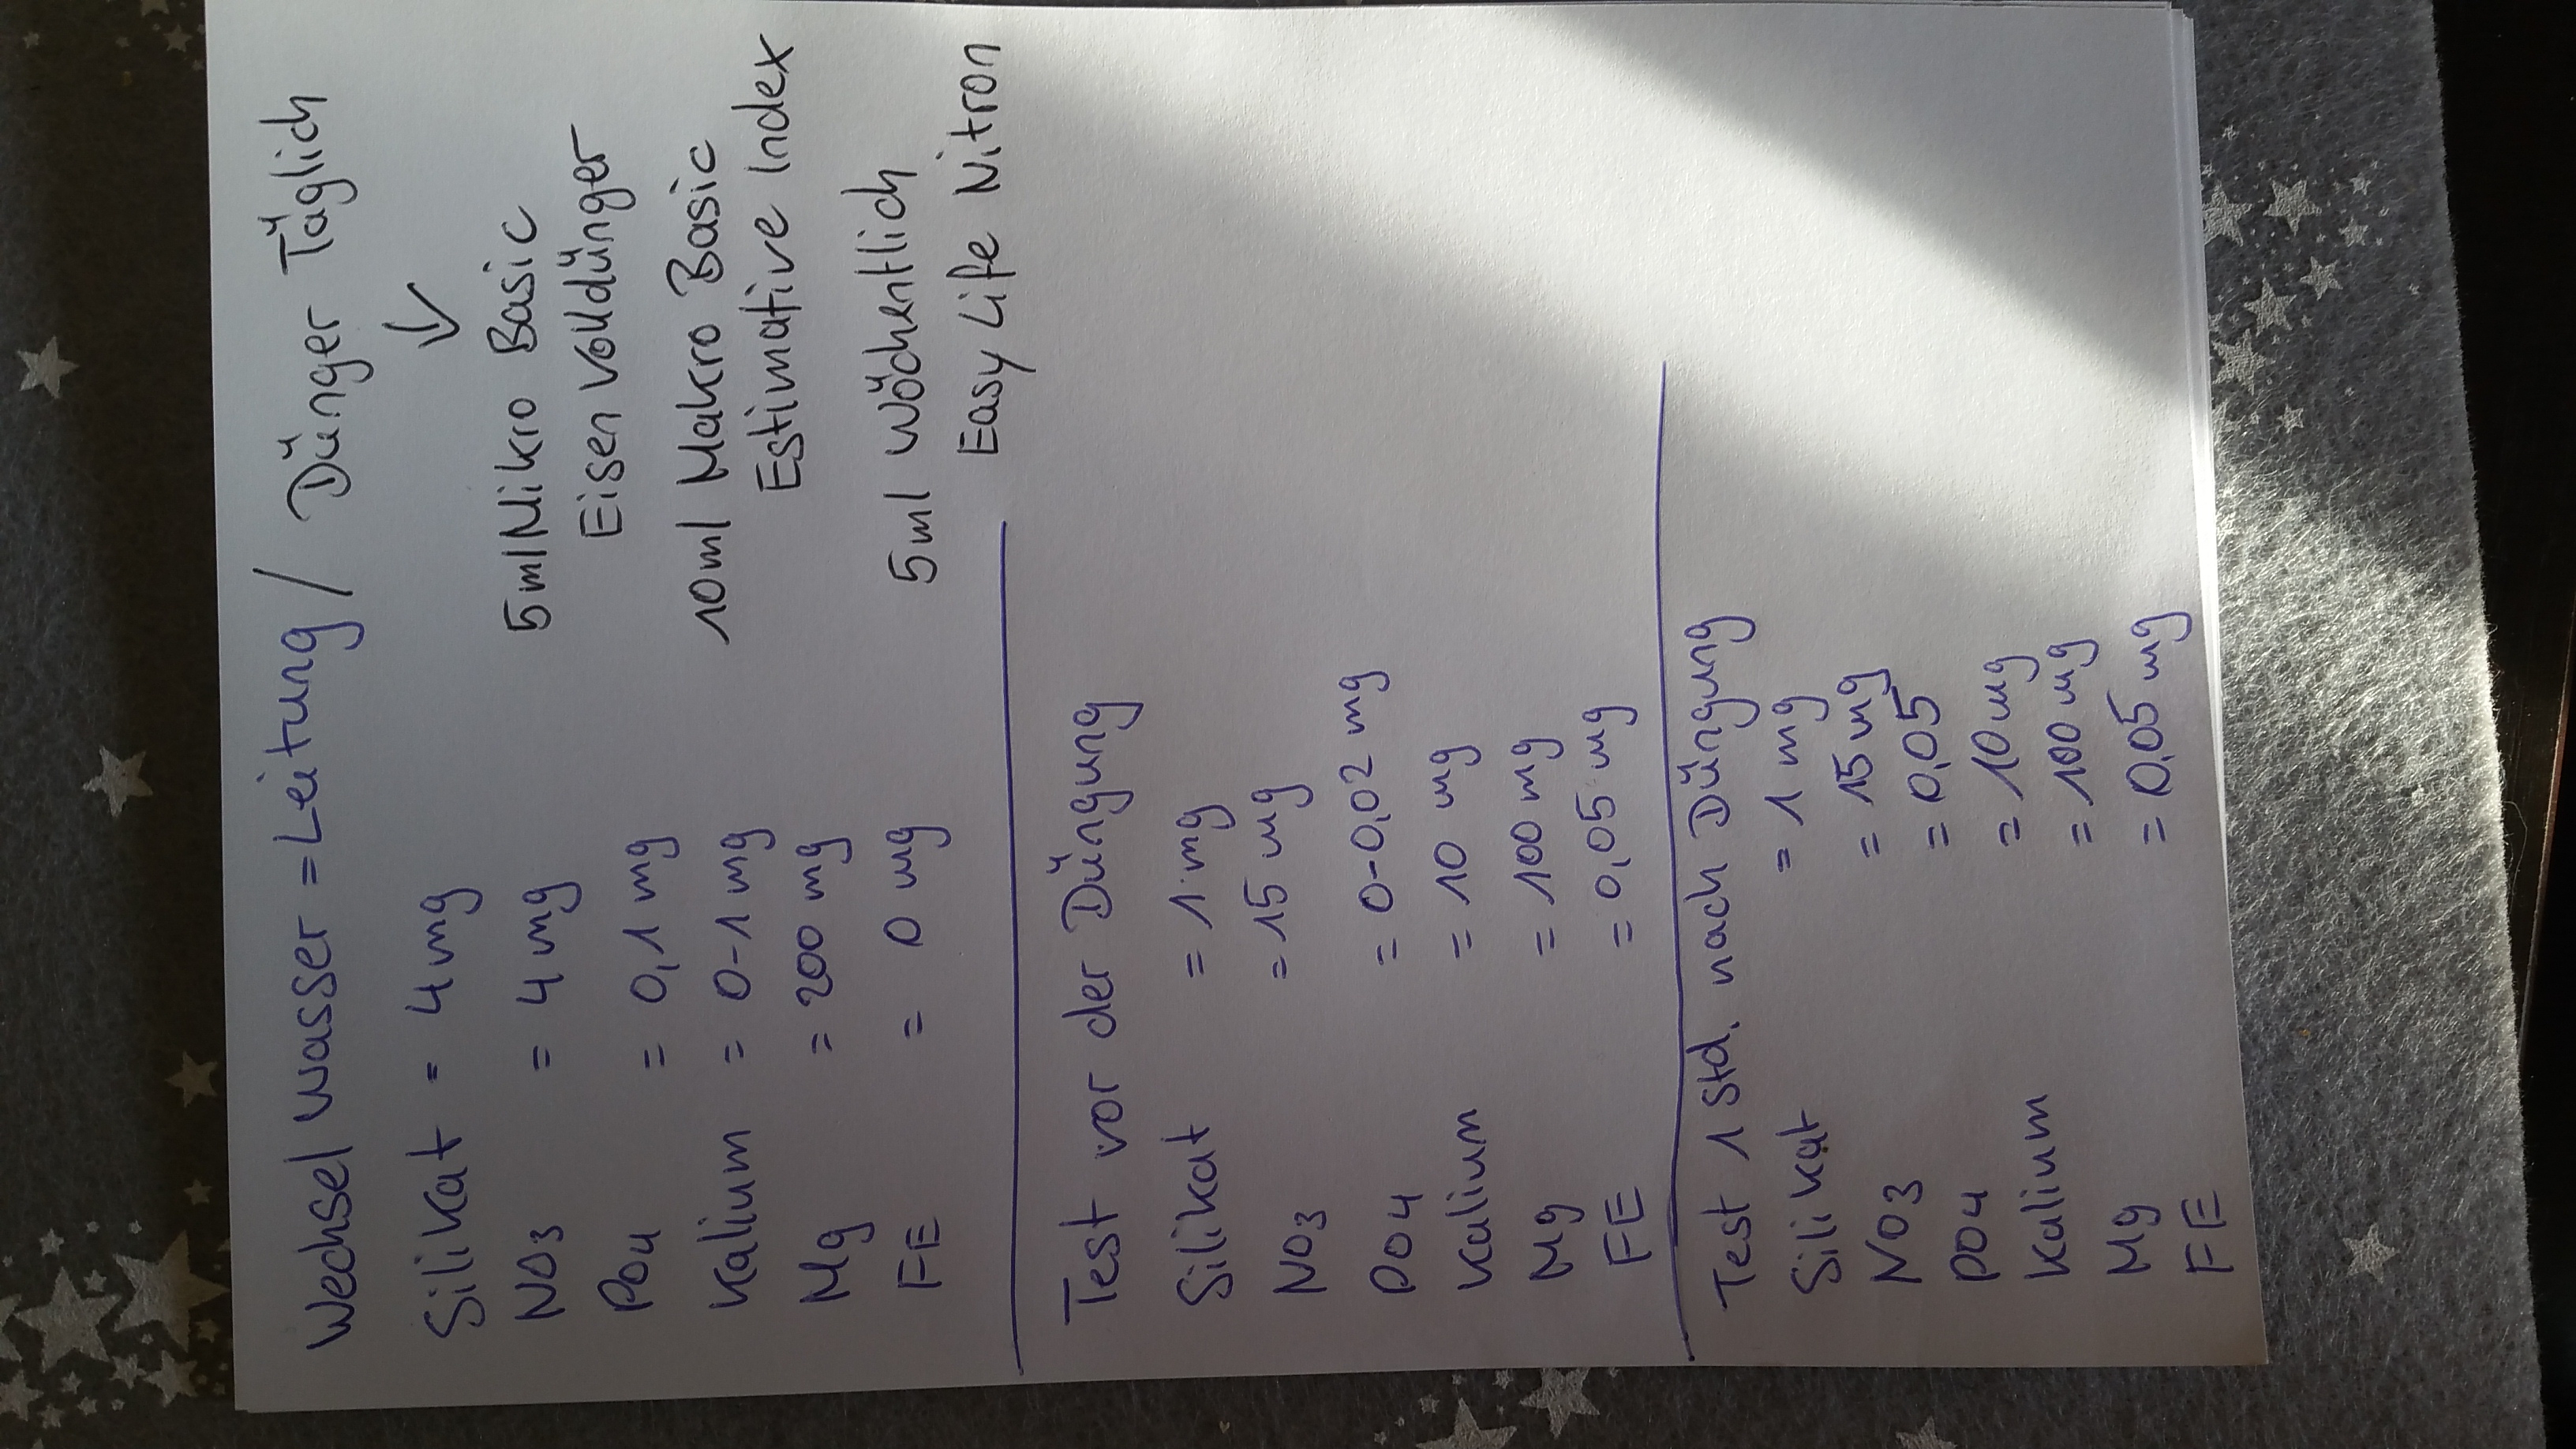 Wechsel Wasser = Leitung / Dünger Täglich
↓
Silikat = 4 mg
NO3 = 4 mg
PO4 = 0,1 mg
Kalium = 0-1 mg
Mg = 200 mg
FE = 0 mg
5ml Mikro Basic
Eisen Volldünger
10ml Makro Basic
Estimative Index
5ml Wöchentlich
Easy Life Nitron
Test vor der Düngung
Silikat = 1 mg
NO3 = 15 mg
PO4 = 0-0,02 mg
Kalium = 10 mg
Mg = 100 mg
FE = 0,05 mg
Test 1 Std. nach Düngung
Silikat = 1 mg
NO3 = 15 mg
PO4 = 0,05
Kalium = 10 mg
Mg = 100 mg
FE = 0,05 mg